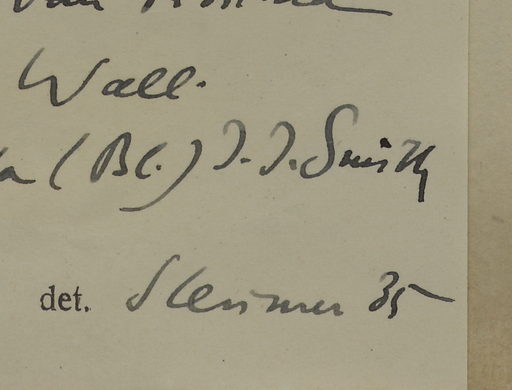 Wall.
(Bl.) J. J. Smith
det. Sleumer 35